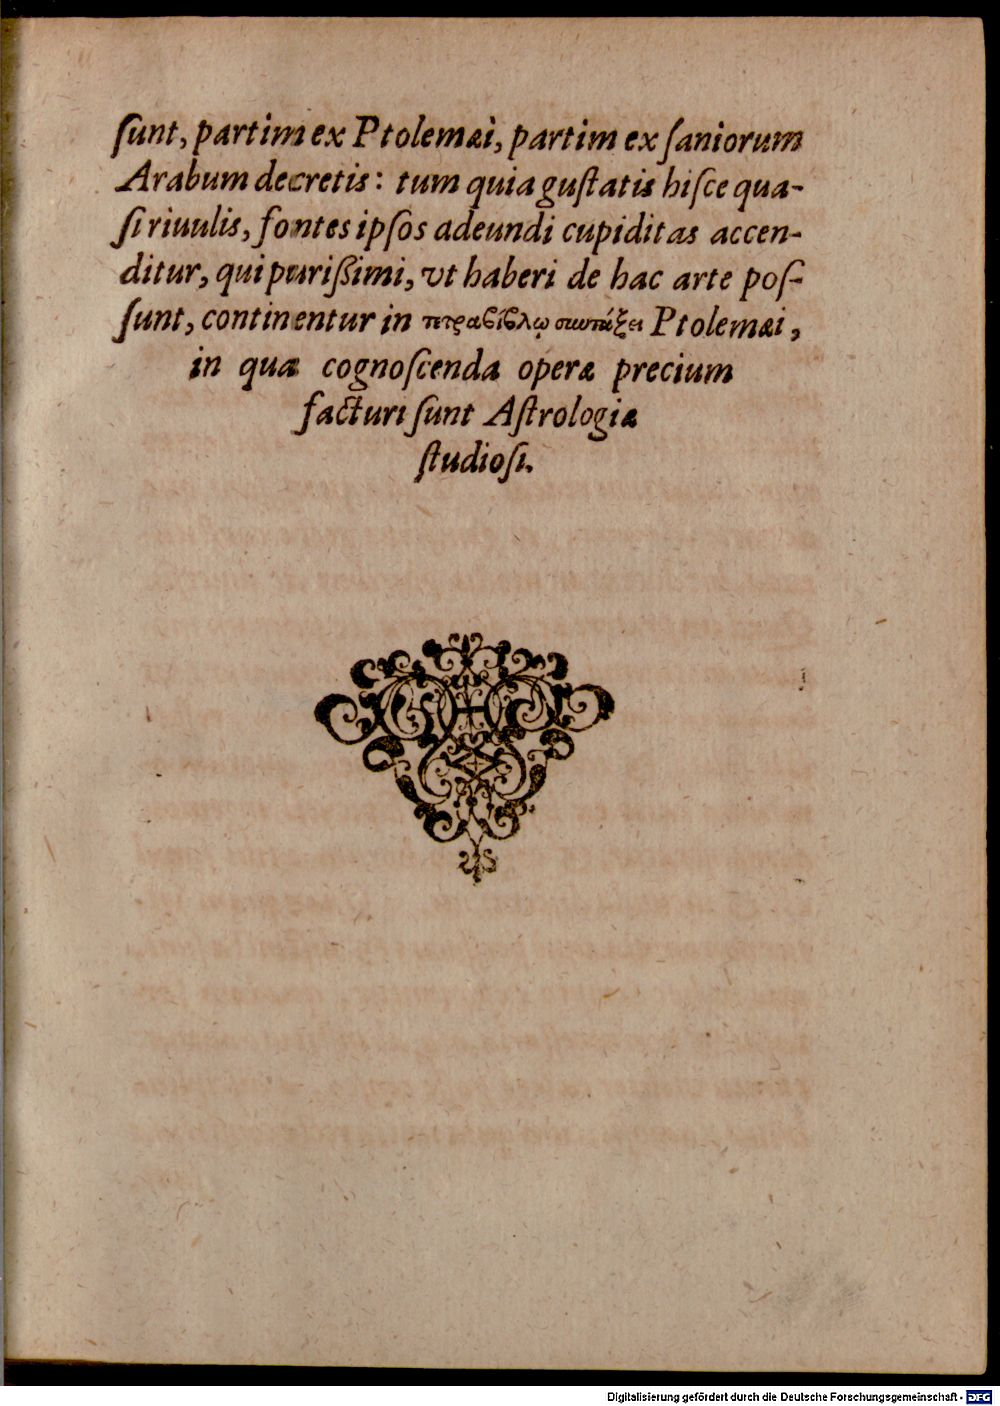 ſunt, partim ex Ptolemæi, partim ex ſaniorum
Arabum decretis: tum quia guſtatis hiſce qua-
ſi riuulis, fontes ipſos adeundi cupiditas accen-
ditur, qui purißimi, vt haberi de hac arte poſ-
ſunt, continentur in τετραβίβλῳ συντάξει Ptolemæi,
in qua cognoſcenda operæ precium
facturi ſunt Aſtrologiæ
ſtudioſi.
Digitalisierung gefördert durch die Deutsche Forschungsgemeinschaft - DFG